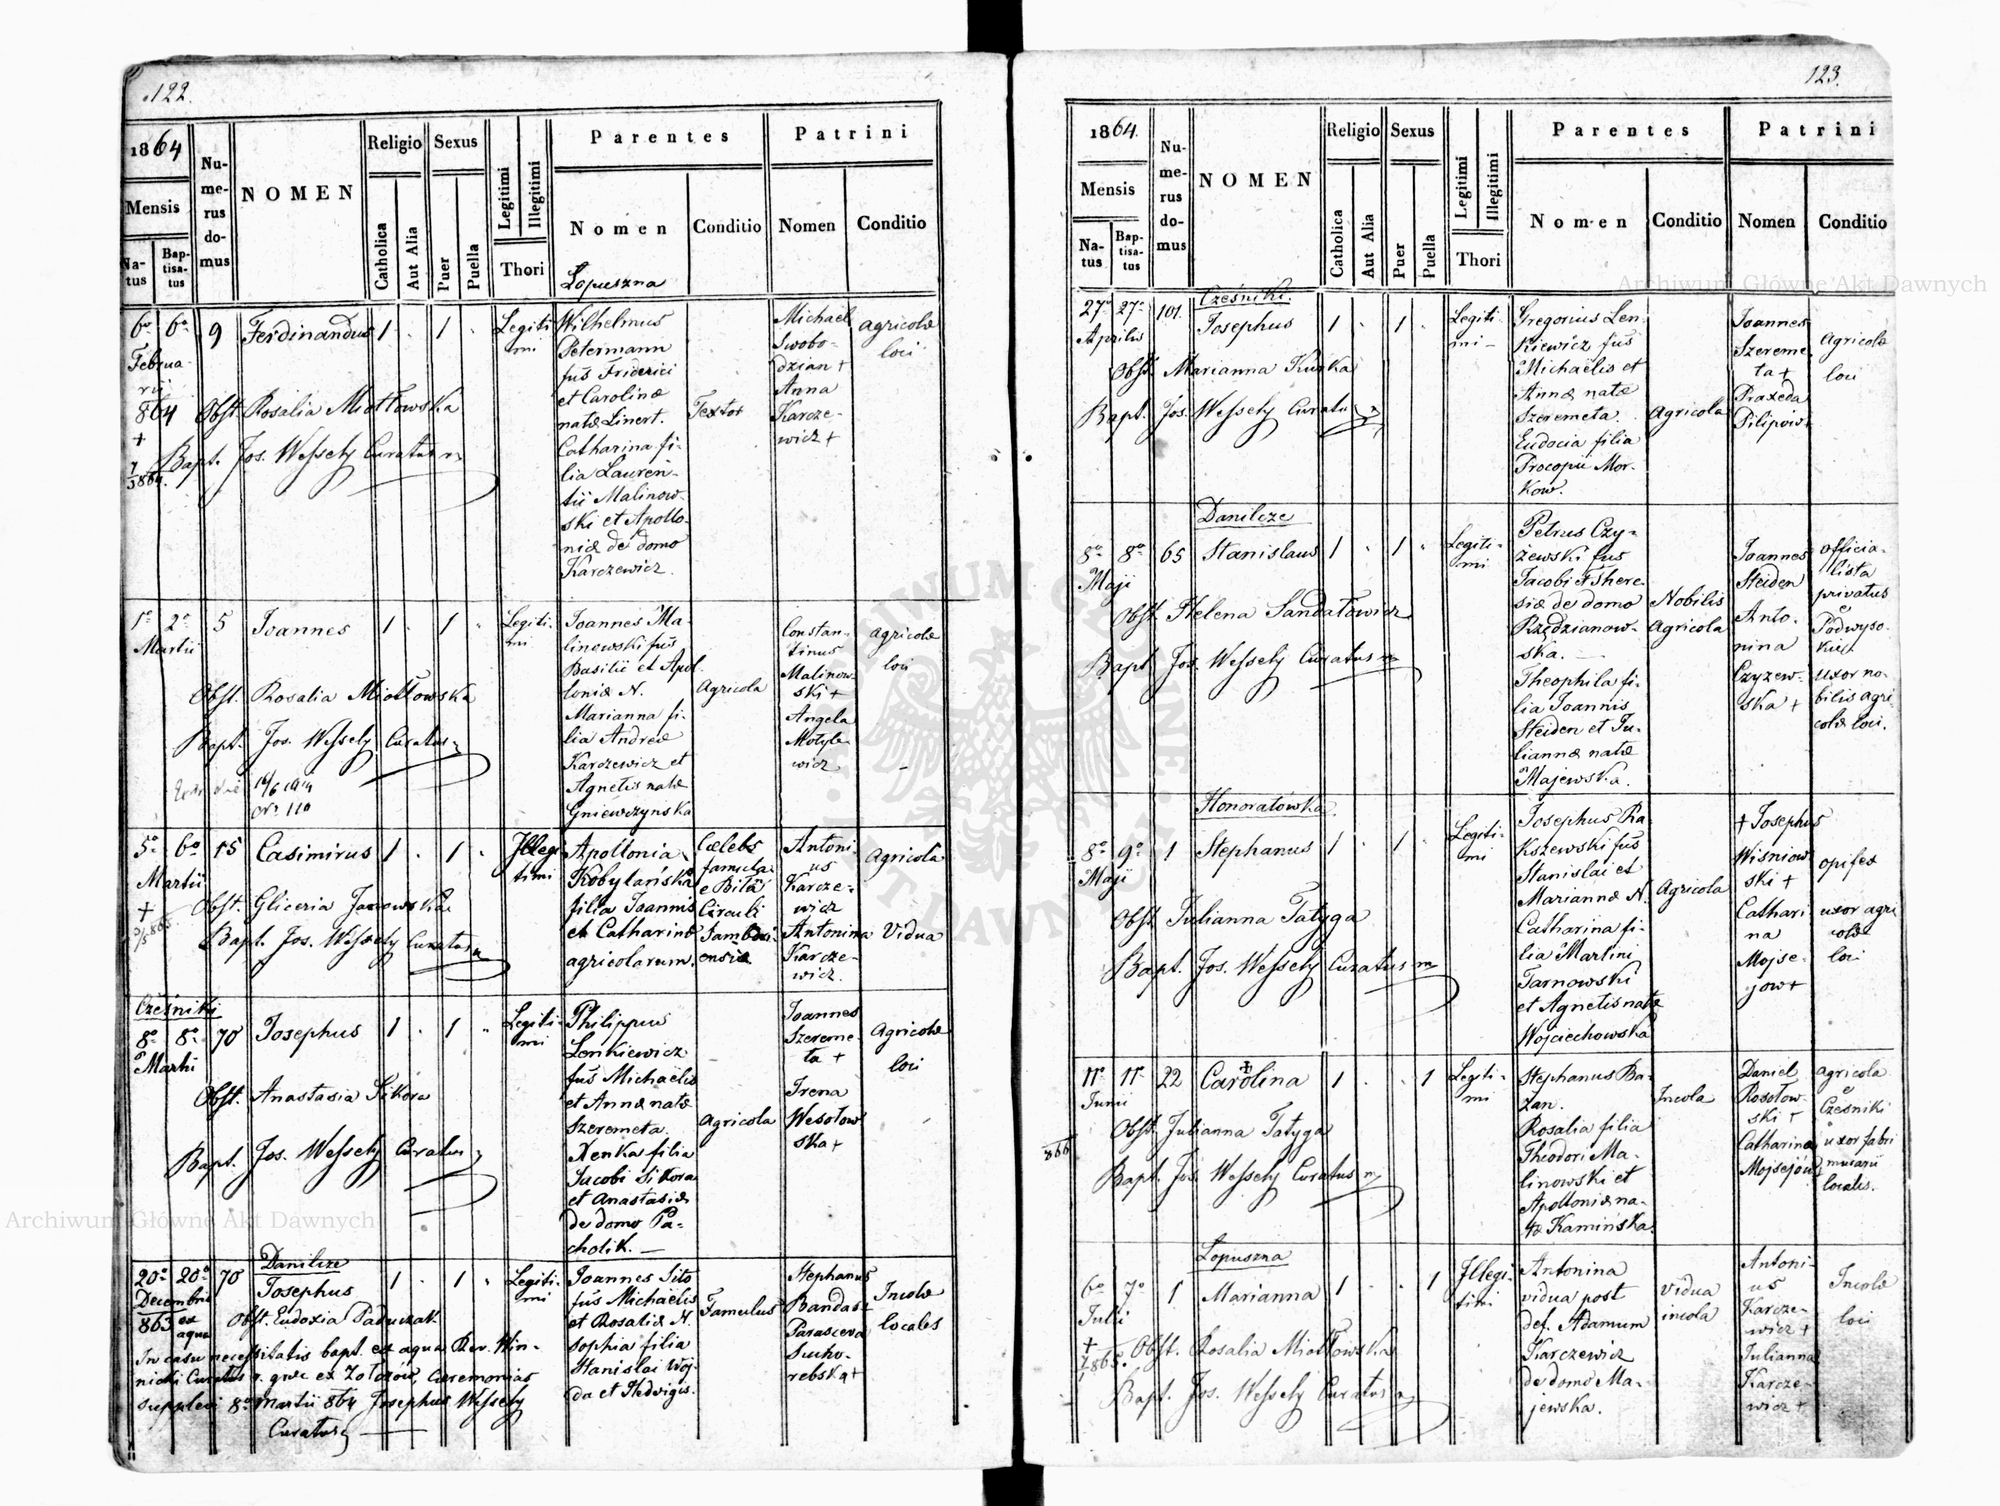 122.
1864
Mensis
Na-
tus
Bap-
tisa-
tus
Nu-
me-
rus
do-
mus
NOMEN
Religio
Catholica
Aut Alia
Sexus
Puer
Puella
Legitimi
Illegitimi
Thori
Parentes
Nomen
Conditio
Patrini
Nomen
Conditio
Łopuszna
6a 6a 9 Ferdinandus 1 . 1 .
Februa-
rii
864
+
Obst. Rosalia Miottowska
Bapt. Jos. Wessely Curatus
Legiti-
mi
Wilhelmus
Petermann
fus Friderici
et Carolinæ
natæ Linert.
Catharina fi-
lia Lauren-
tii Malinow-
ski et Apollo-
niæ de domo
Karczewicz.
Textor
Michael
Swobo-
dzian +
Anna
Karcze-
wicz +
Agricolæ
loci
1a 2a 5 Joannes 1 . 1 .
Martii
Obst. Rosalia Miottowska
Bapt. Jos. Wessely Curatus
No 110
Legiti-
mi
Joannes Ma-
linowski fus
Basilii et Apol-
loniæ N.
Marianna fi-
lia Andreæ
Karczewicz et
Agnetis natæ
Gniewczynska
Agricola
Constan-
tinus
Malinow-
ski +
Angela
Motyle-
wicz
Agricolæ
loci
5a 6a 15 Casimirus 1 . 1 .
Martii
+
Obst. Gliceria Janowska
Bapt. Jos. Wessely Curatus
Illegi-
timi
Apollonia
Kobylańska
filia Joannis
et Catharinæ
agricolarum.
Cælebs
famula
e Biłá
Circuli
Sambori-
ensis
Antoni-
us
Karcze-
wicz
Antonina
Karcze-
wicz.
Agricola
Vidua
Cześniki
8a 8a 70 Josephus 1 . 1 .
Martii
Obst. Anastasia Sikora
Bapt. Jos. Wessely Curatus
Legiti-
mi
Philippus
Lenkiewicz
fus Michaelis
et Annæ natæ
Szeremeta.
Xenka filia
Jacobi Sikora
et Anastasiæ
de domo Pa-
cholik.
Agricola
Joannes
Szereme-
ta +
Irena
Wesołow-
ska +
Agricolæ
loci
Danilcze
20a 20a 70 Josephus 1 . 1 .
Decembris
863 ex
aqua
Obst. Eudoxia Paduczak
In casu necessitatis bapt. ex aqua Rev. Win-
nicki Curatus r. græc ex Zołczów, Cæremonias
supplevi 8a Martii 864 Josephus Wessely
Curatus
Legiti-
mi
Joannes Sito
fus Michaelis
et Rosaliæ N.
Sophia filia
Stanislai Woj-
da et Hedvigis.
Famulus
Stephanus
Bandas +
Parasceva
Sucho-
rebska +
Incolæ
locales
123.
1864.
Mensis
Na-
tus
Bap-
tisa-
tus
Nu-
me-
rus
do-
mus
NOMEN
Religio
Catholica
Aut Alia
Sexus
Puer
Puella
Legitimi
Illegitimi
Thori
Parentes
Nomen
Conditio
Patrini
Nomen
Conditio
Cześniki.
27a 27a 101. Josephus 1 . 1 .
Aprilis
Obst. Marianna Kurka
Bapt. Jos. Wessely Curatus
Legiti-
mi
Gregorius Len-
kiewicz fus
Michaelis et
Annæ natæ
Szeremeta.
Eudocia filia
Procopii Mor-
kow.
Agricola
Joannes
Szereme-
ta +
Praxeda
Pilipów.
Agricolæ
loci
Danilcze
8a 8a 65 Stanislaus 1 . 1 .
Maji
Obst. Helena Sandałowicz
Bapt. Jos. Wessely Curatus
Legiti-
mi
Petrus Czy-
żewski fus
Jacobi et There-
siæ de domo
Rzędzianow-
ska.
Theophila fi-
lia Joannis
Steiden et Ju-
liannæ natæ
Majewska.
Nobilis
Agricola
Joannes
Steiden
Anto-
nina
Czyzew-
ska +
Officia-
lista
privatus
e
Podwyso-
kie
uxor no-
bilis agri-
colæ loci.
Honoratówka
8a 9a 1 Stephanus 1 . 1 .
Maji
Obst. Julianna Tatyga
Bapt. Jos. Wessely Curatus
Legiti-
mi
Josephus Ra-
kszewski fus
Stanislai et
Mariannæ N.
Catharina fi-
lia Martini
Tarnowski
et Agnetis natæ
Wojciechowska
Agricola
+ Josephus
Wisniow-
ski +
Cathari-
na
Mojse-
jow +
opifex
uxor agri-
colæ
loci
11a 11a 22 Carolina 1 . . 1
Junii
866
Obst. Julianna Tatyga
Bapt. Jos. Wessely Curatus
Legiti-
mi
Stephanus Ba-
zan.
Rosalia filia
Theodori Ma-
linowski et
Apolloniæ na-
tæ Kamińska
Incola
Daniel
Rosołow-
ski +
Catharina
Mojsejów
Agricola
e
Cześniki
uxor fabri
murarii
localis.
Łopuszna
6a 7a 1 Marianna 1 . . 1
Julii
+
Obst. Rosalia Miottowska
Bapt. Jos. Wessely Curatus
Illegi-
timi
Antonina
vidua post
def. Adamum
Karczewicz
de domo Ma-
jewska.
Vidua
incola
Antoni-
us
Karcze-
wicz +
Julianna
Karcze-
wicz +
Incolæ
loci
Archiwum Główne Akt Dawnych
Archiwum Główne Akt Dawnych